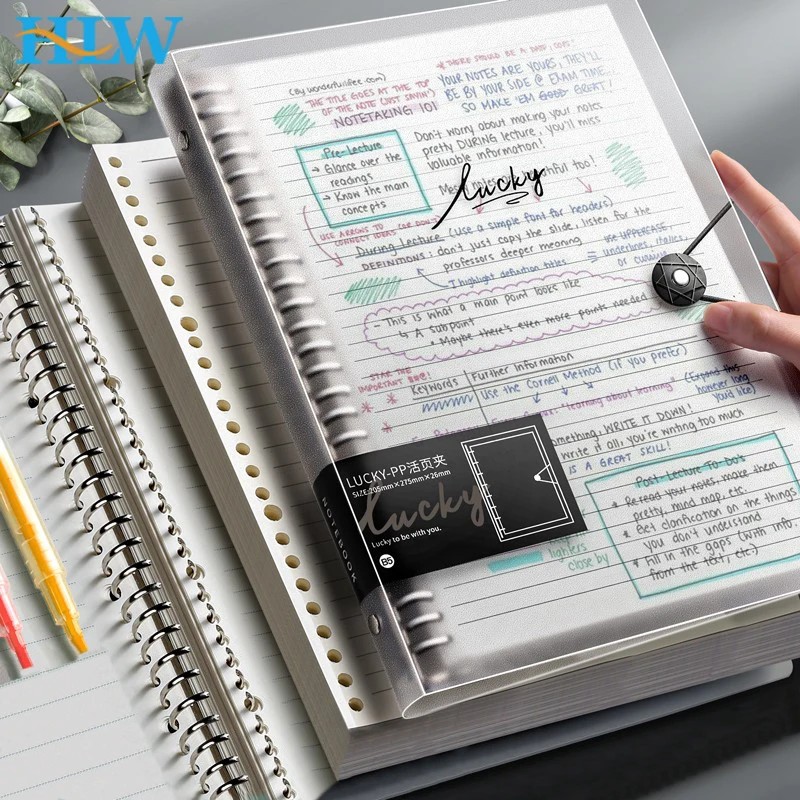 HLW
(By wonderfulifee.com)
* THERE SHOULD BE A DATE, TOO!
THE TITLE GOES AT THE TOP
OF THE NOTE (JUST SAYIN')
NOTETAKING 101
YOUR NOTES ARE YOURS, THEY'LL
BE BY YOUR SIDE @ EXAM TIME...
SO MAKE 'EM GOOD GREAT!
Pre-Lecture
→ Glance over the
readings
→ Know the main
concepts
Don't worry about making your notes
pretty DURING lecture, you'll miss
valuable information!
too!
lucky
USE ARROWS TO
CONNECT IDEAS (OR DON'T)
During Lecture (use a simple font for headers)
DEFINITIONS: don't just copy the slide, listen for the
professors deeper meaning
USE UPPERCASE,
underlines, italics,
or cursive
I highlight definition titles
- This is what a main point looks like
↳ A subpoint
* Maybe there's even more points needed
STAR THE
IMPORTANT
Keywords
Further Information
Use the Cornell Method (if you prefer)
"learning about learning"
(Expand this
however long
you'd like)
WRITE IT DOWN!
write it all, you're writing too much
IS A GREAT SKILL!
LUCKY-PP活页夹
SIZE:205mm×275mm×26mm
lucky
Lucky to be with you.
B5
NOTEBOOK
lighters
close by
Post Lecture To Do's
* Re read your notes, make them
pretty, mind map, etc.
* Get clarification on the things
you don't understand
* Fill in the gaps (with info.
from the text, etc.)